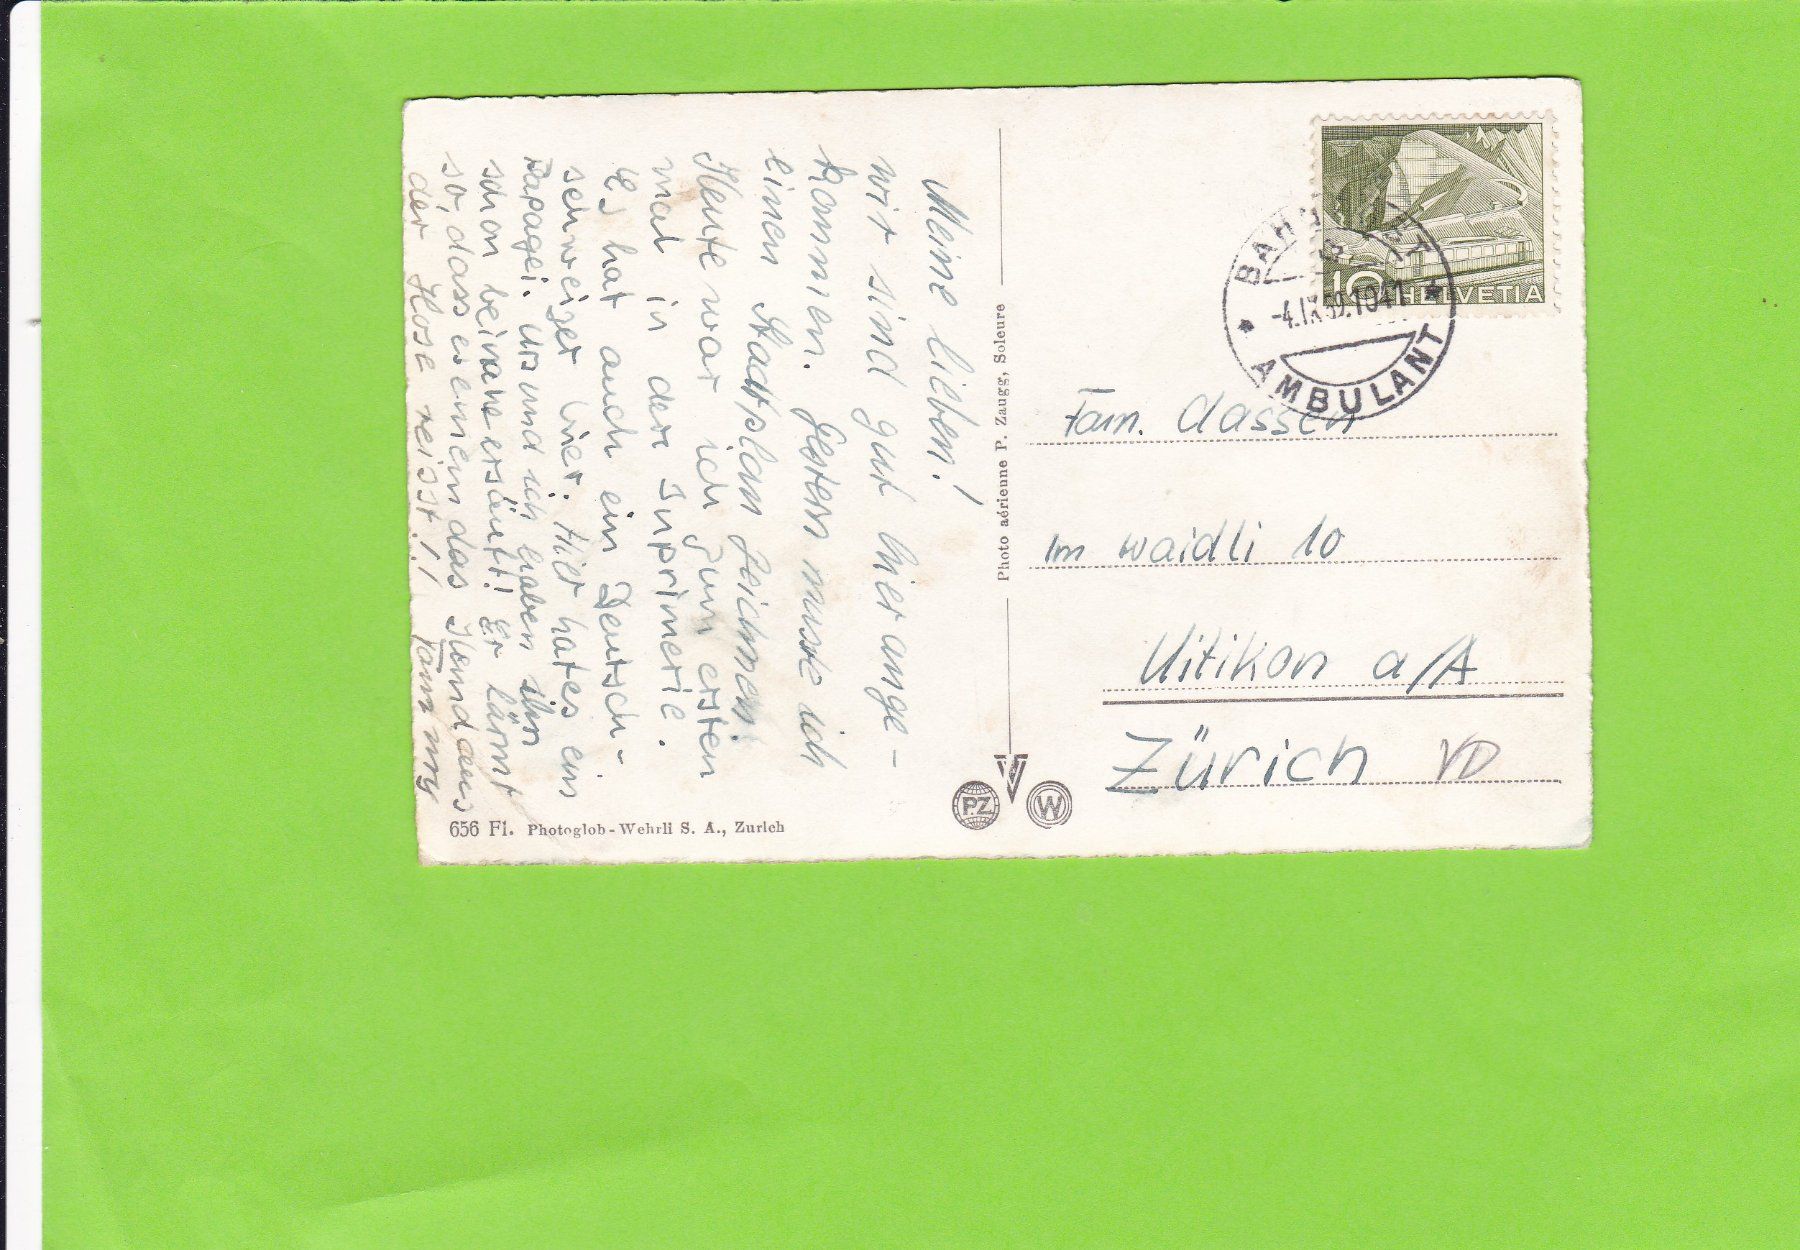 Meine lieben!
wir sind gut hier ange-
kommen. Gestern musste ich
einen Stadtplan zeichnen!
Heute war ich zum ersten
mal in der Inprimerie.
Es hat auch ein Deutsch-
schweizer hier. Hier hat es ein
Papagei. Urs und ich haben ihn
schon beinahe ersäuft! Er lärmt
so, dass es einem das Hemd aus
der Hose reisst!!
656 Fl. Photoglob-Wehrli S. A., Zurich
Photo aérienne P. Zaugg, Soleure
PZ
W
10 HELVETIA
-4.IX.59.1041
AMBULANT
Fam. Classen
Im Waidli 10
Uitikon a/A
Zürich VD